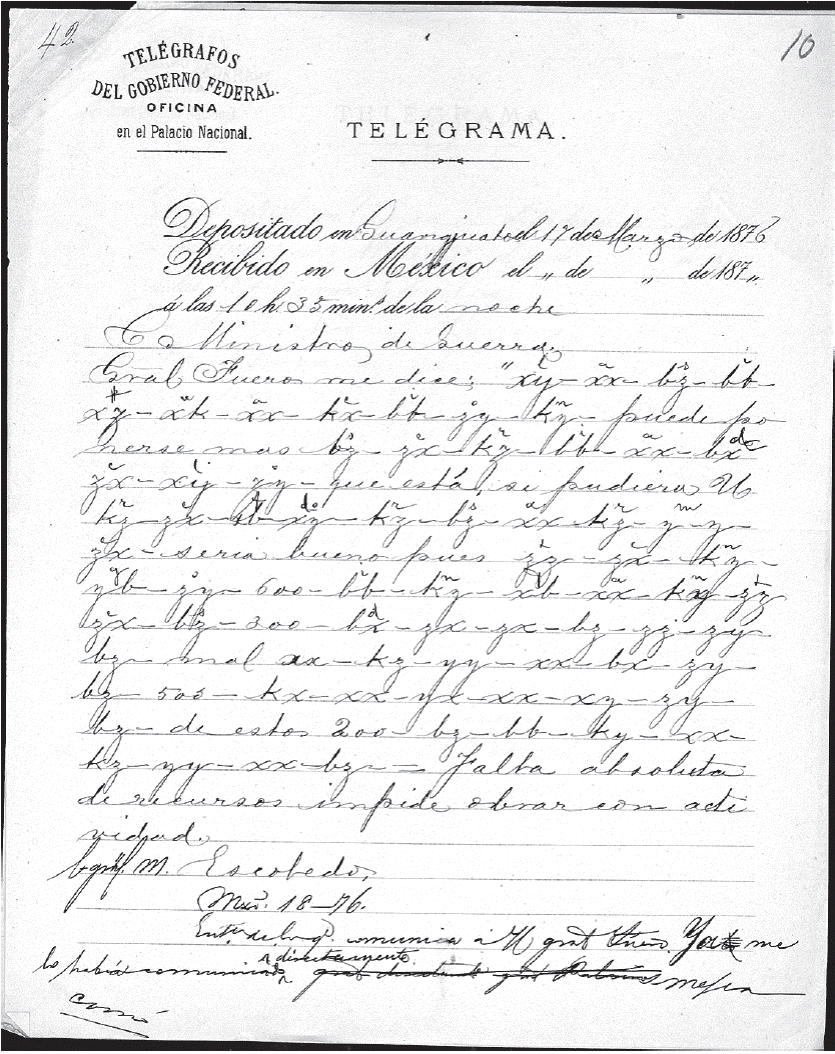 42
10
TELÉGRAFOS
DEL GOBIERNO FEDERAL.
OFICINA
en el Palacio Nacional.
TELÉGRAMA.
Depositado en Guanajuato el 17 de Marzo de 1876
Recibido en México el „ de „ de 187„
á las 10 h. 35 min.s de la noche
C. Ministro de Guerra,
Gral Fuero me dice; "xy— xx— bz— bb—
xz— xk— xx— kx— bb— zy— kz— puede po
nerse mas bz— zx— kz— bb— xx— bx
zx— xy— zy— que está, si pudiera U
kz— zx— xb— xz— kz— bz— xx— kz— y— y—
zx— seria bueno pues zz— zx— kz—
yb— zy— 600— bb— kz— xb— xx— kz— zz
zx— bz— 300— bx— zx— zx— bz— zz— zy—
bz— mal xx— kz— yy— xx— bx— zy—
bz— 505— kx— xx— yx— xx— xy— zy—
bz— de estos 200— bz— bb— ky— xx—
kz— yy— xx— bz—= Falta absoluta
de recursos impide obrar con acti
vidad.
M. Escobedo,
18—76.
comunica á gral Fuero. Ya me
lo había comunicado directamente